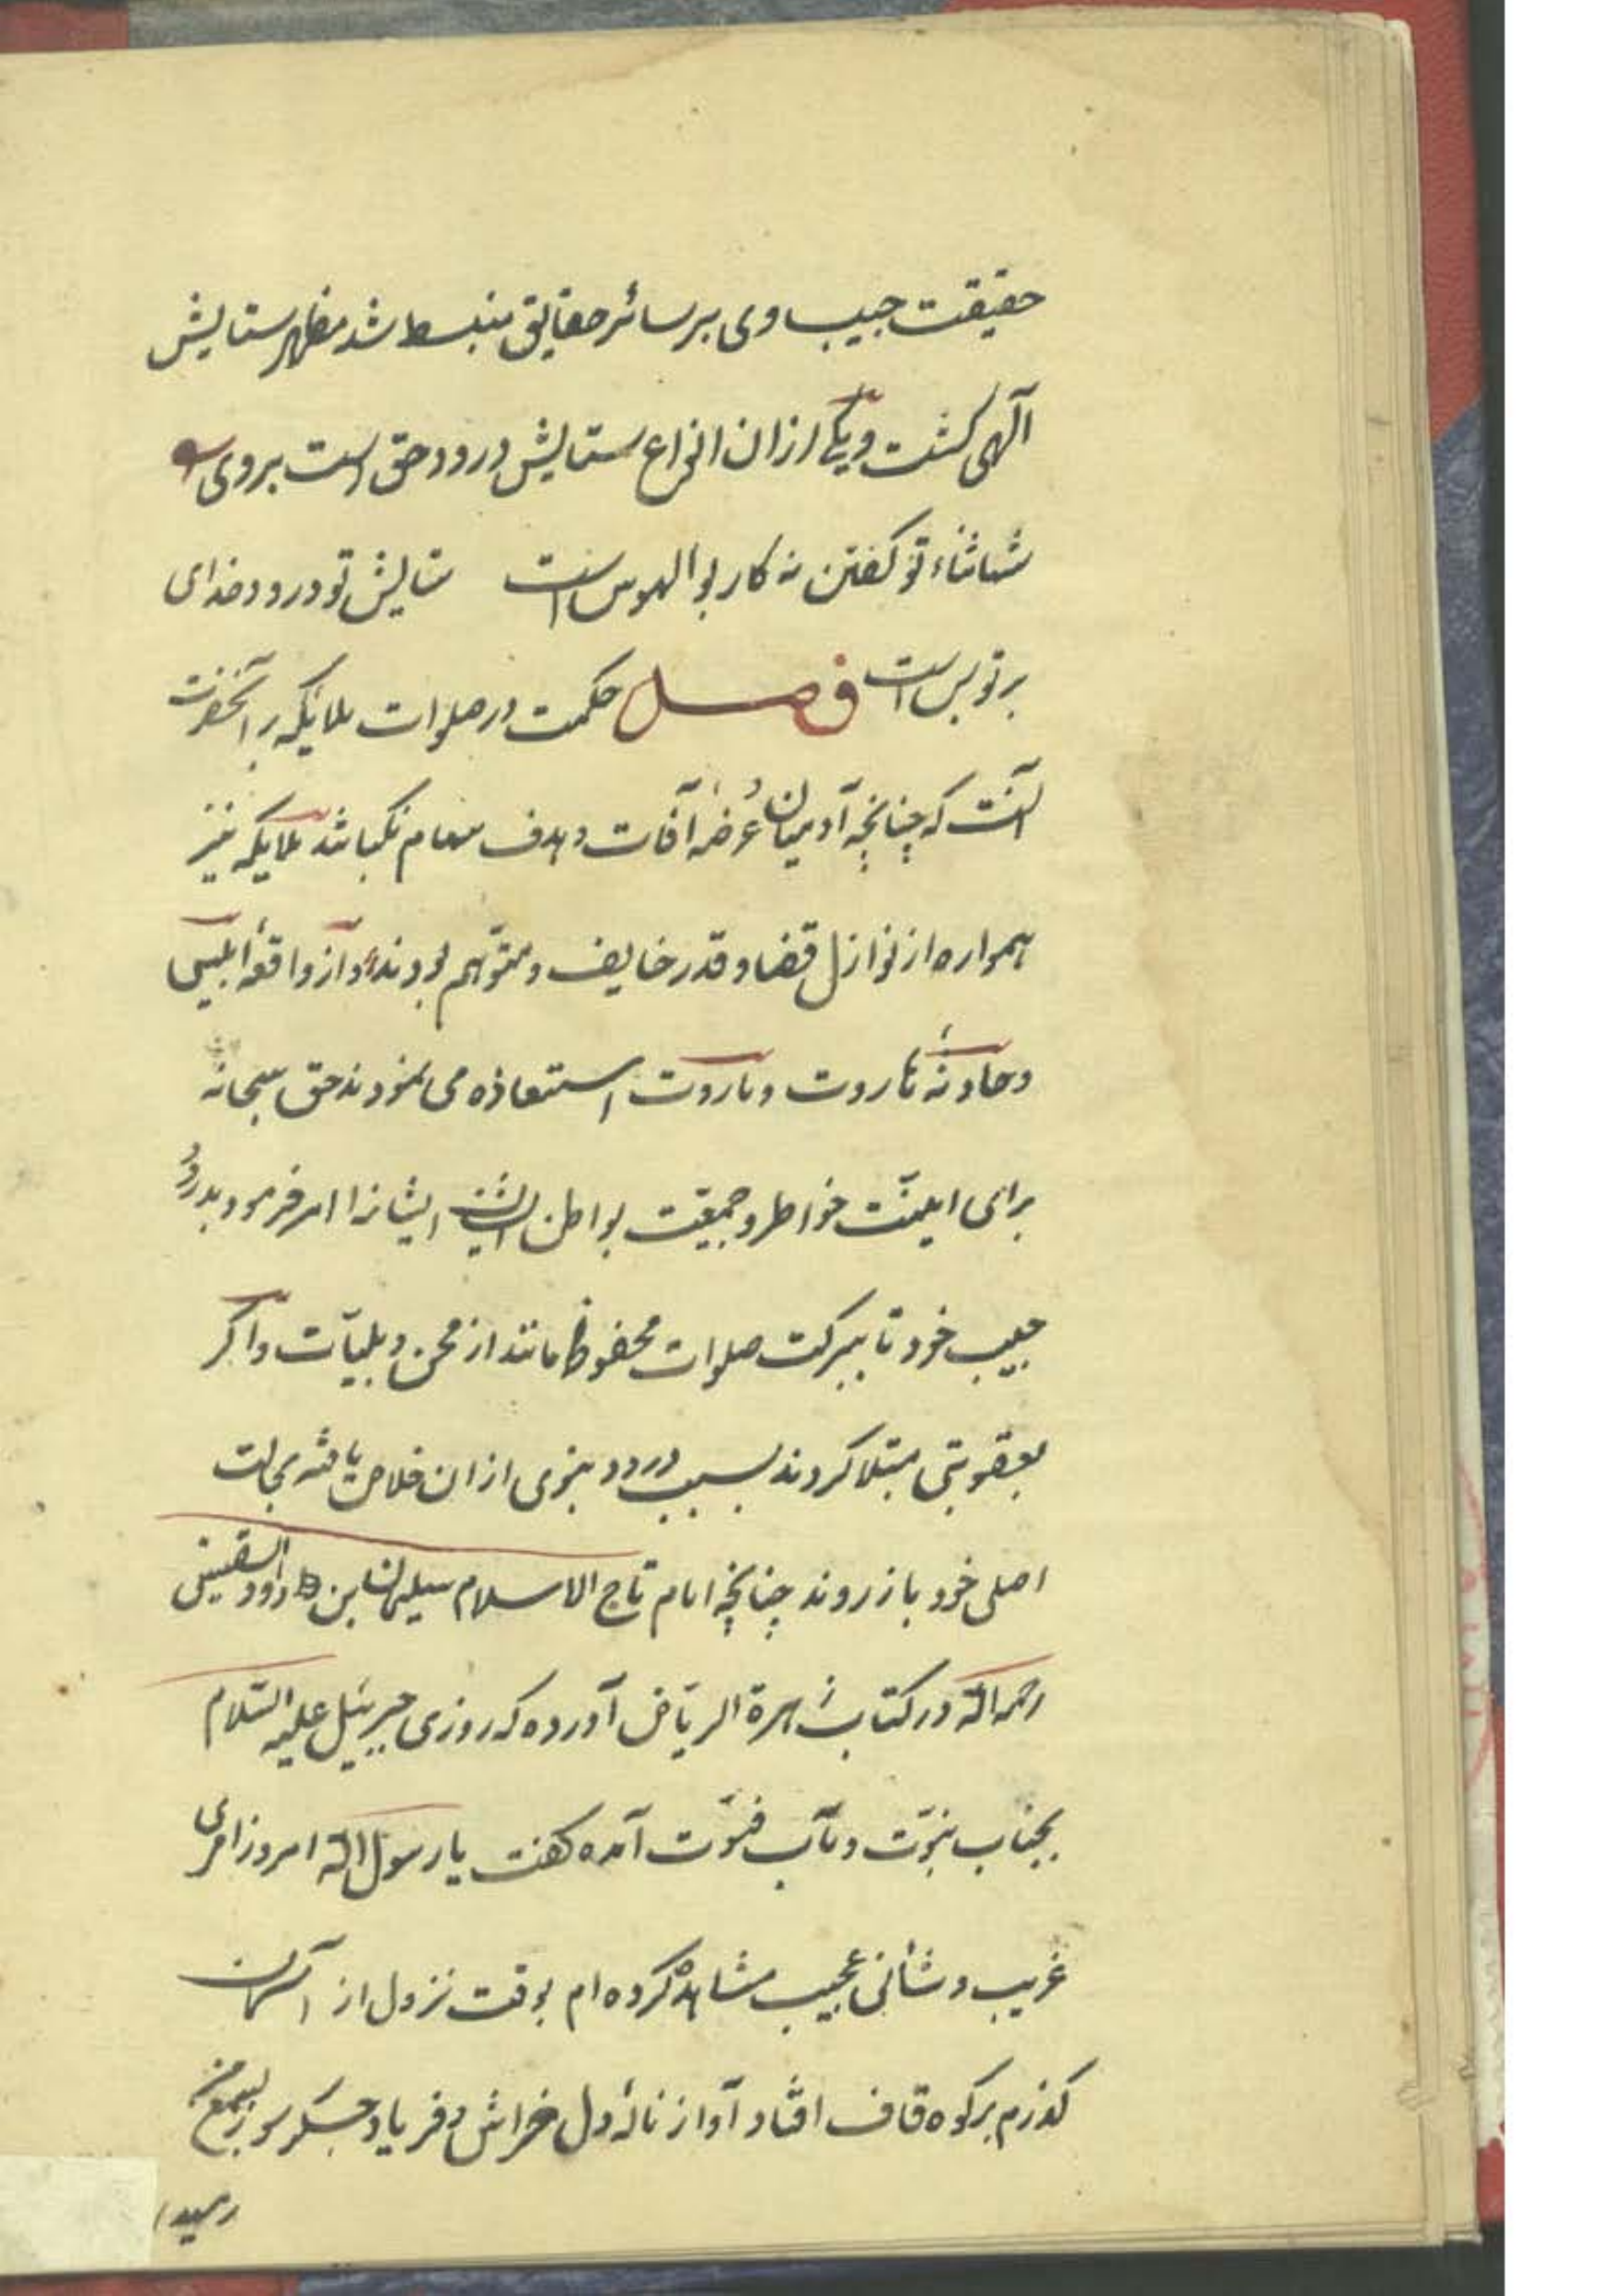 حقیقت حبیب وی بر سائر حقایق منبسط شد مظهر ستایش
آلهی کشت و یکی ازان انواع ستایش درود حق است بروی
شها ثناء تو کفتن نه کار بوالهوس است ستایش تو درود خدای
بر تو بس است فصل حکمت در صلوات ملایکه بر آنحضرت
آنست که چنانچه آدمیان عرضهٔ آفات و هدف سهام باشند ملایکه نیز
همواره از نوازل قضا و قدر خایف و متوهم بودند و از واقعهٔ ابلیس
و حادثهٔ هاروت و ماروت استعاذه می نمودند حق سبحانه
برای ایمنت خواطر و جمعیت بواطن ایشانرا امر فرمود بدرود
حبیب خود تا ببرکت صلوات محفوظ مانند از محن و بلیات و اکر
بعقوبتی مبتلا کردند بسبب درود نبوی ازان خلاص یافته بحالت
اصلی خود باز روند چنانچه امام تاج الاسلام سلیمان بن داود السقینی
رحمه الله در کتاب زهرة الریاض آورده که روزی جبرئیل علیه السلام
بجناب نبوت و مآب فتوت آمده کفت یا رسول الله امروز امری
غریب و شأنی عجیب مشاهده کرده ام بوقت نزول از آسمان
کذرم بر کوه قاف افتاد آواز نالهٔ دل خراش و فریاد جکر سوز بسمع من
رسید